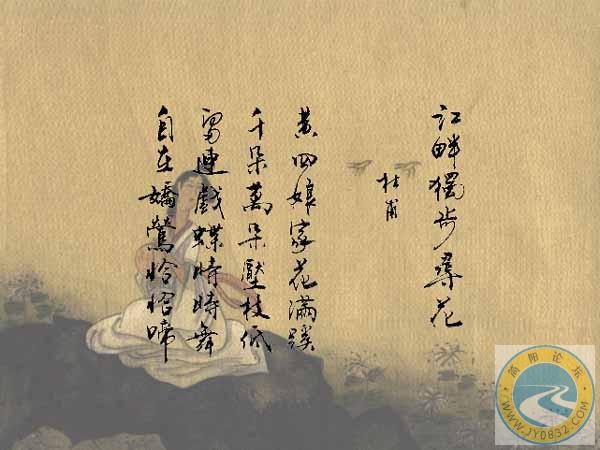 江畔獨步尋花
杜甫
黄四娘家花滿蹊
千朵萬朵壓枝低
留連戲蝶時時舞
自在嬌鶯恰恰啼
简阳论坛
WWW.JY0832.COM